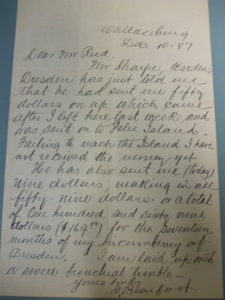 Wallaceburg
Dec 10. 87
Dear Mr Reed
Mr Sharpe, Warden,
Dresden has just told me
that he had sent me fifty
dollars on a/c which came
after I left here last week and
was sent on to Pelee Island.
Failing to reach the Island I have
not received the money yet.
He has also sent me (today)
Nine dollars, making in all
fifty-nine dollars. or a total
of One hundred and sixty nine
dollars ($169.00) for the Seventeen
months of my incumbency of
Dresden. I am laid up with
a severe bronchial trouble –
Yours truly